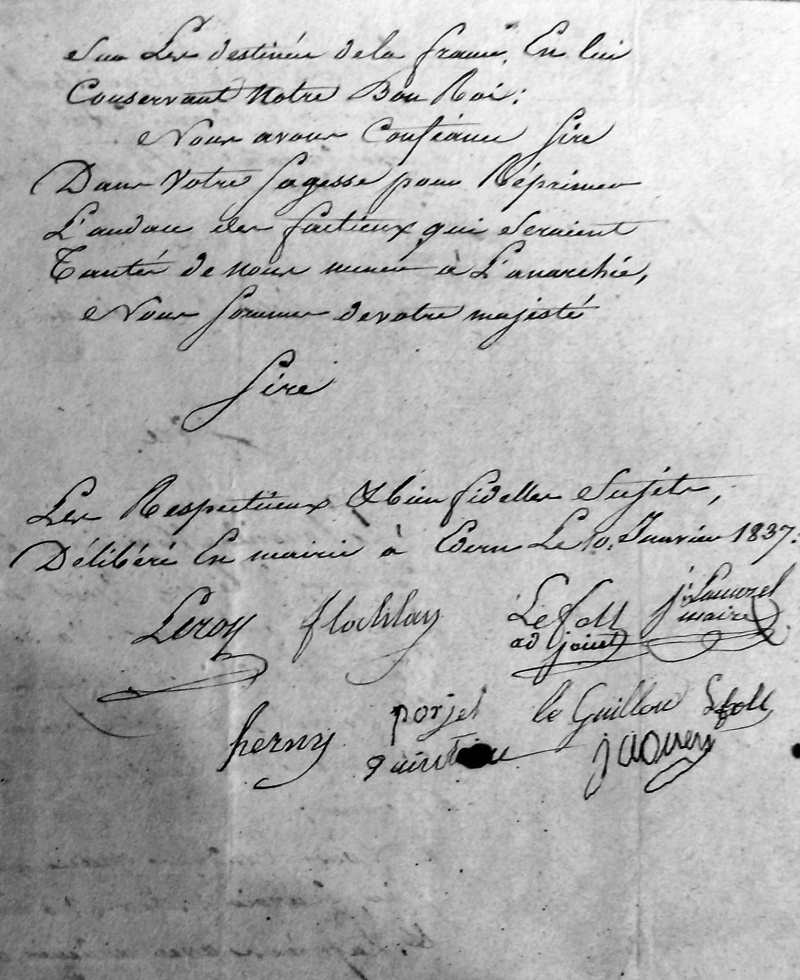 Sur Les destinées de la france. En lui
Conservant Notre Bon Roi;
Nous avons Conféance Sire
Dans Votre Sagesse pour Réprimer
L'audace des factieux qui Seraient
Tantés de nous mener à L'anarchie,
Nous Sommes de votre majesté
Sire
Les Respectueux & bien fidelles Sujets,
Délibéré En mairie à Edern Le 10. Janvier 1837.
Leroy flochlay Le foll
adjoint maire
herny porjel le Guillou Lefoll
jaouen